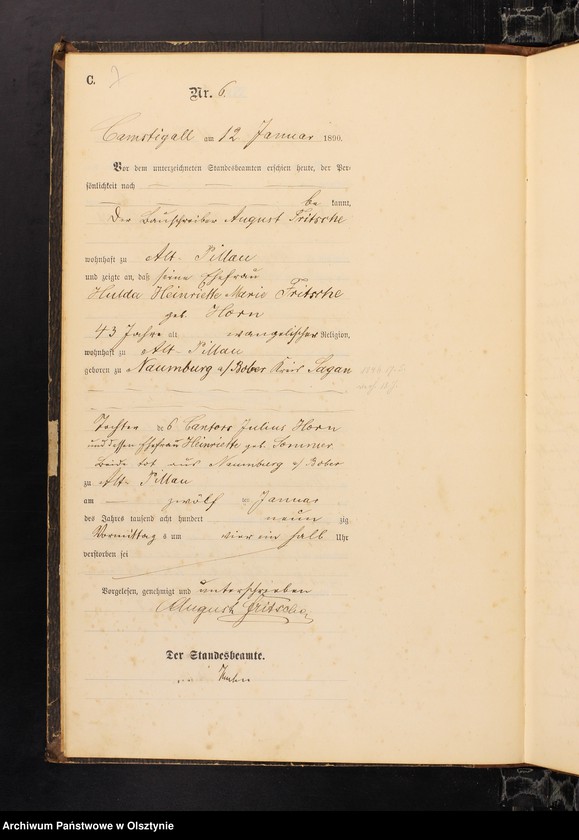 C.
Nr. 6.
Camstigall am 12 Januar 1890.
Vor dem unterzeichneten Standesbeamten erschien heute, der Per-
sönlichkeit nach
be kannt,
Der Bauschreiber August Fritsche
wohnhaft zu Alt-Pillau
und zeigte an, daß seine Ehefrau
Hulda Heinriette Marie Fritsche
geb. Horn
43 Jahre alt evangelischer Religion,
wohnhaft zu Alt-Pillau
geboren zu Naumburg a/Bober Kreis Sagan
Tochter des Cantors Julius Horn
und dessen Ehefrau Heinriette geb. Sommer
Beide tot aus Naumburg a/Bober
zu Alt-Pillau
am zwölf ten Januar
des Jahres tausend acht hundert neun zig
Vormittags um vier ein halb Uhr
verstorben sei
Vorgelesen, genehmigt und unterschrieben
August Fritsche
Der Standesbeamte.
Archiwum Państwowe w Olsztynie